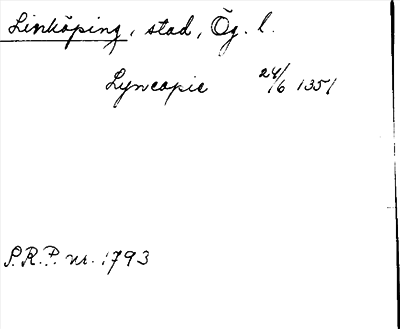 Linköping, stad, Ög. l.
Lyncopie 24/6 1351
S.R.P. nr. 1793